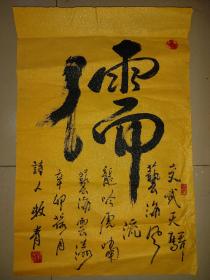 儒
文武天驕
藝海風
流
龍吟虎嘯
藝海雲
辛卯月
詩人牧青